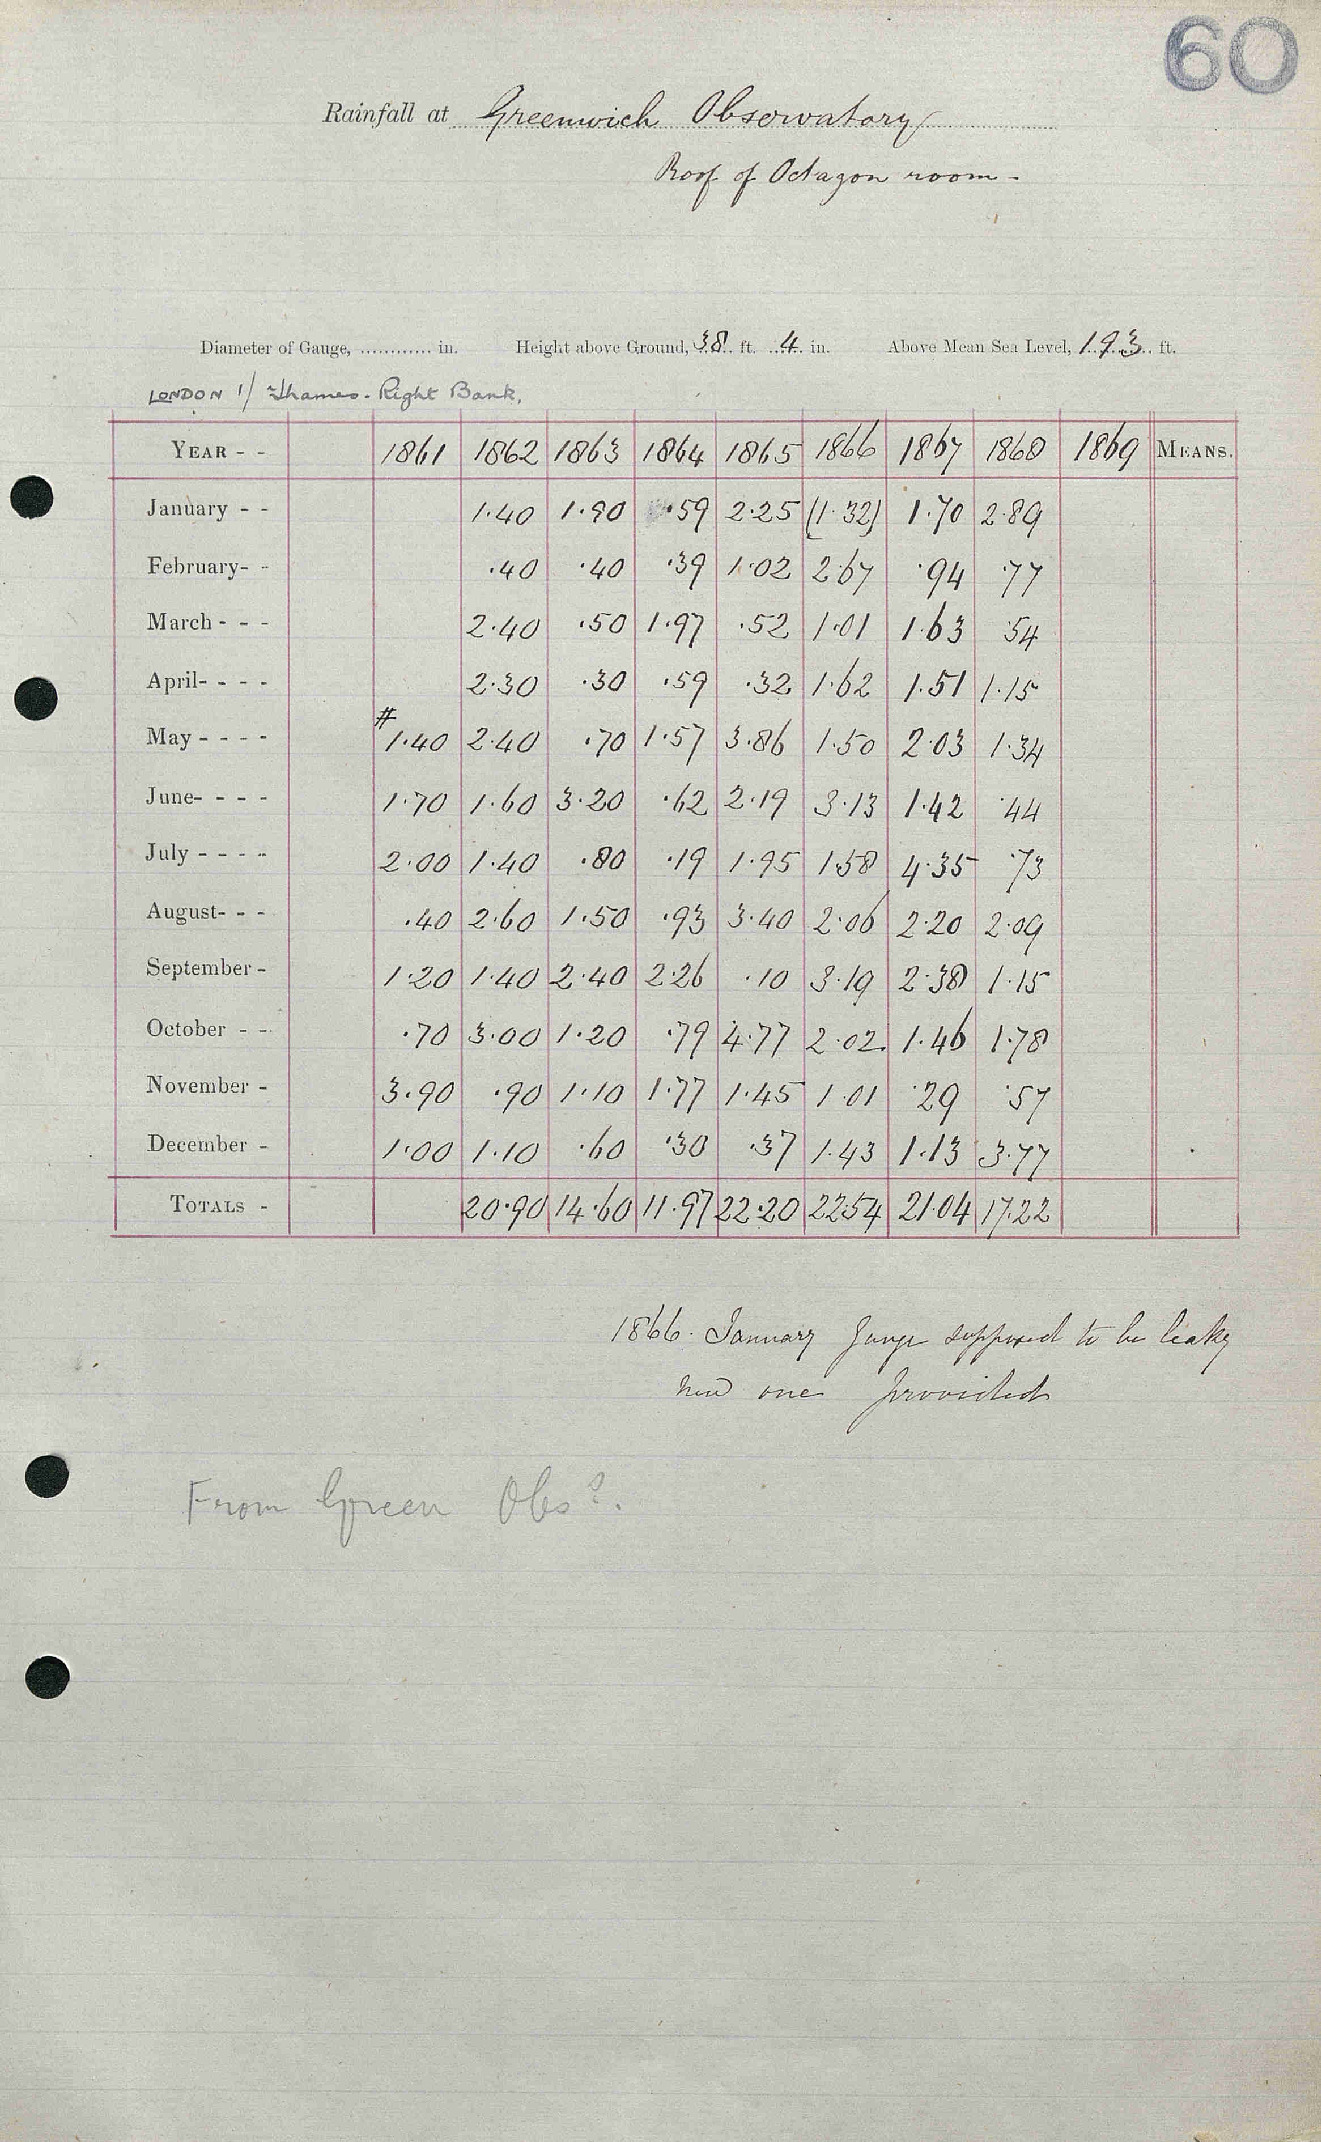 60
Rainfall at Greenwich Observatory
Roof of Octagon room -
Diameter of Gauge, ............ in. Height above Ground, 38 ft. 4 in. Above Mean Sea Level, 193 ft.
LONDON 1/ Thames - Right Bank.
YEAR - - 1861 1862 1863 1864 1865 1866 1867 1868 1869 MEANS.
January - - 1.40 1.90 .59 2.25 (1.32) 1.70 2.89
February - - .40 .40 .39 1.02 2.67 .94 .77
March - - - 2.40 .50 1.97 .52 1.01 1.63 .54
April - - - - 2.30 .30 .59 .32 1.62 1.51 1.15
#
May - - - - 1.40 2.40 .70 1.57 3.86 1.50 2.03 1.34
June - - - - 1.70 1.60 3.20 .62 2.19 3.13 1.42 .44
July - - - - 2.00 1.40 .80 .19 1.95 1.58 4.35 .73
August - - - .40 2.60 1.50 .93 3.40 2.06 2.20 2.09
September - 1.20 1.40 2.40 2.26 .10 3.19 2.38 1.15
October - - .70 3.00 1.20 .79 4.77 2.02 1.46 1.78
November - 3.90 .90 1.10 1.77 1.45 1.01 .29 .57
December - 1.00 1.10 .60 .30 .37 1.43 1.13 3.77
TOTALS - 20.90 14.60 11.97 22.20 22.54 21.04 17.22
1866. January Gauge supposed to be leaky
new one provided
From Green Obsn.